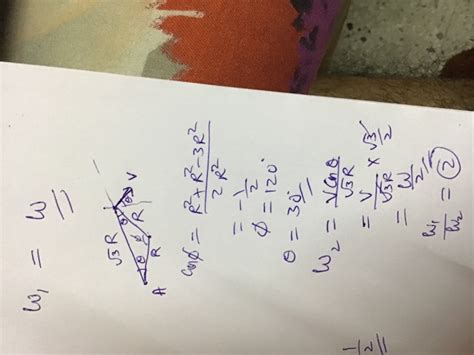 ω₁ = ω
√3R
θ
θ
θ
ϕ
R
R
V
A
cosϕ = (R² + R² - 3R²) / 2R²
= -1/2
ϕ = 120°
θ = 30°
ω₂ = v cosθ / √3R
= v / √3R × √3/2
= ω/2
ω₁/ω₂ = 2
1/2